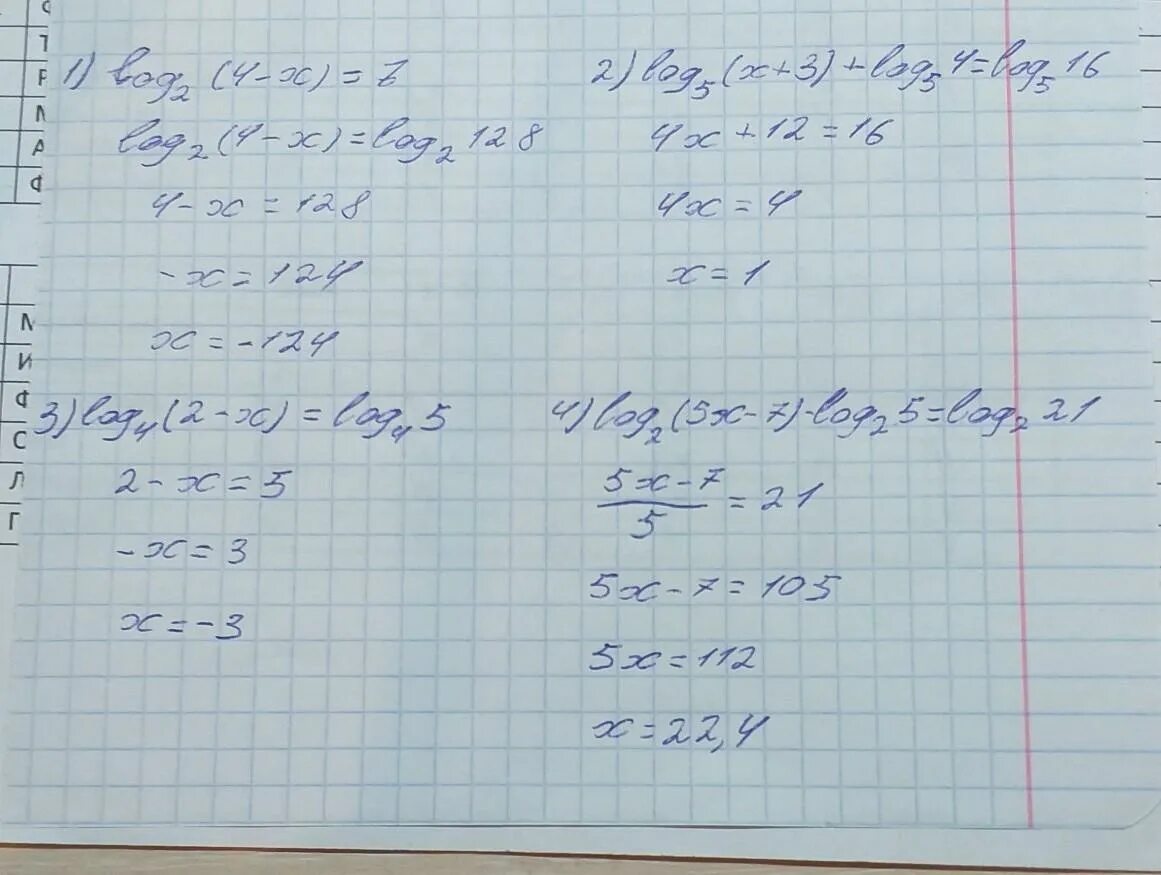 1) log₂ (4-x) = 7
log₂ (4-x) = log₂ 128
4-x = 128
-x = 124
x = -124
2) log₅ (x+3) + log₅ 4 = log₅ 16
4x + 12 = 16
4x = 4
x = 1
3) log₄ (2-x) = log₄ 5
2-x = 5
-x = 3
x = -3
4) log₂ (5x-7) - log₂ 5 = log₂ 21
5x-7
5
= 21
5x-7 = 105
5x = 112
x = 22,4